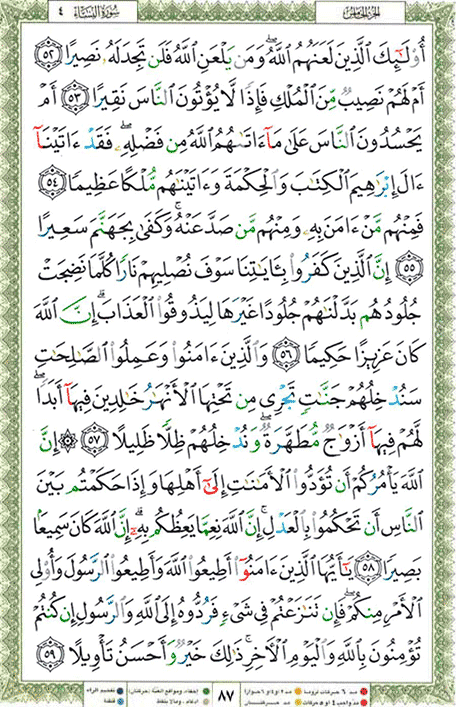 الجزء الخامس سورة النساء ٤
أُوْلَـٰٓئِكَ ٱلَّذِينَ لَعَنَهُمُ ٱللَّهُ ۖ وَمَن يَلْعَنِ ٱللَّهُ فَلَن تَجِدَ لَهُۥ نَصِيرًا ٥٢
أَمْ لَهُمْ نَصِيبٌ مِّنَ ٱلْمُلْكِ فَإِذًا لَّا يُؤْتُونَ ٱلنَّاسَ نَقِيرًا ٥٣ أَمْ
يَحْسُدُونَ ٱلنَّاسَ عَلَىٰ مَآ ءَاتَىٰهُمُ ٱللَّهُ مِن فَضْلِهِۦ ۖ فَقَدْ ءَاتَيْنَآ
ءَالَ إِبْرَٰهِيمَ ٱلْكِتَـٰبَ وَٱلْحِكْمَةَ وَءَاتَيْنَـٰهُم مُّلْكًا عَظِيمًا ٥٤
فَمِنْهُم مَّنْ ءَامَنَ بِهِۦ وَمِنْهُم مَّن صَدَّ عَنْهُ ۚ وَكَفَىٰ بِجَهَنَّمَ سَعِيرًا
٥٥ إِنَّ ٱلَّذِينَ كَفَرُوا۟ بِـَٔايَـٰتِنَا سَوْفَ نُصْلِيهِمْ نَارًا كُلَّمَا نَضِجَتْ
جُلُودُهُم بَدَّلْنَـٰهُمْ جُلُودًا غَيْرَهَا لِيَذُوقُوا۟ ٱلْعَذَابَ ۗ إِنَّ ٱللَّهَ
كَانَ عَزِيزًا حَكِيمًا ٥٦ وَٱلَّذِينَ ءَامَنُوا۟ وَعَمِلُوا۟ ٱلصَّـٰلِحَـٰتِ
سَنُدْخِلُهُمْ جَنَّـٰتٍ تَجْرِى مِن تَحْتِهَا ٱلْأَنْهَـٰرُ خَـٰلِدِينَ فِيهَآ أَبَدًا ۖ
لَّهُمْ فِيهَآ أَزْوَٰجٌ مُّطَهَّرَةٌ ۖ وَنُدْخِلُهُمْ ظِلًّا ظَلِيلًا ٥٧ ۞ إِنَّ
ٱللَّهَ يَأْمُرُكُمْ أَن تُؤَدُّوا۟ ٱلْأَمَـٰنَـٰتِ إِلَىٰٓ أَهْلِهَا وَإِذَا حَكَمْتُم بَيْنَ
ٱلنَّاسِ أَن تَحْكُمُوا۟ بِٱلْعَدْلِ ۚ إِنَّ ٱللَّهَ نِعِمَّا يَعِظُكُم بِهِۦٓ ۗ إِنَّ ٱللَّهَ كَانَ سَمِيعًۢا
بَصِيرًا ٥٨ يَـٰٓأَيُّهَا ٱلَّذِينَ ءَامَنُوٓا۟ أَطِيعُوا۟ ٱللَّهَ وَأَطِيعُوا۟ ٱلرَّسُولَ وَأُو۟لِى
ٱلْأَمْرِ مِنكُمْ ۖ فَإِن تَنَـٰزَعْتُمْ فِى شَىْءٍ فَرُدُّوهُ إِلَى ٱللَّهِ وَٱلرَّسُولِ إِن كُنتُمْ
تُؤْمِنُونَ بِٱللَّهِ وَٱلْيَوْمِ ٱلْـَٔاخِرِ ۚ ذَٰلِكَ خَيْرٌ وَأَحْسَنُ تَأْوِيلًا ٥٩
٨٧